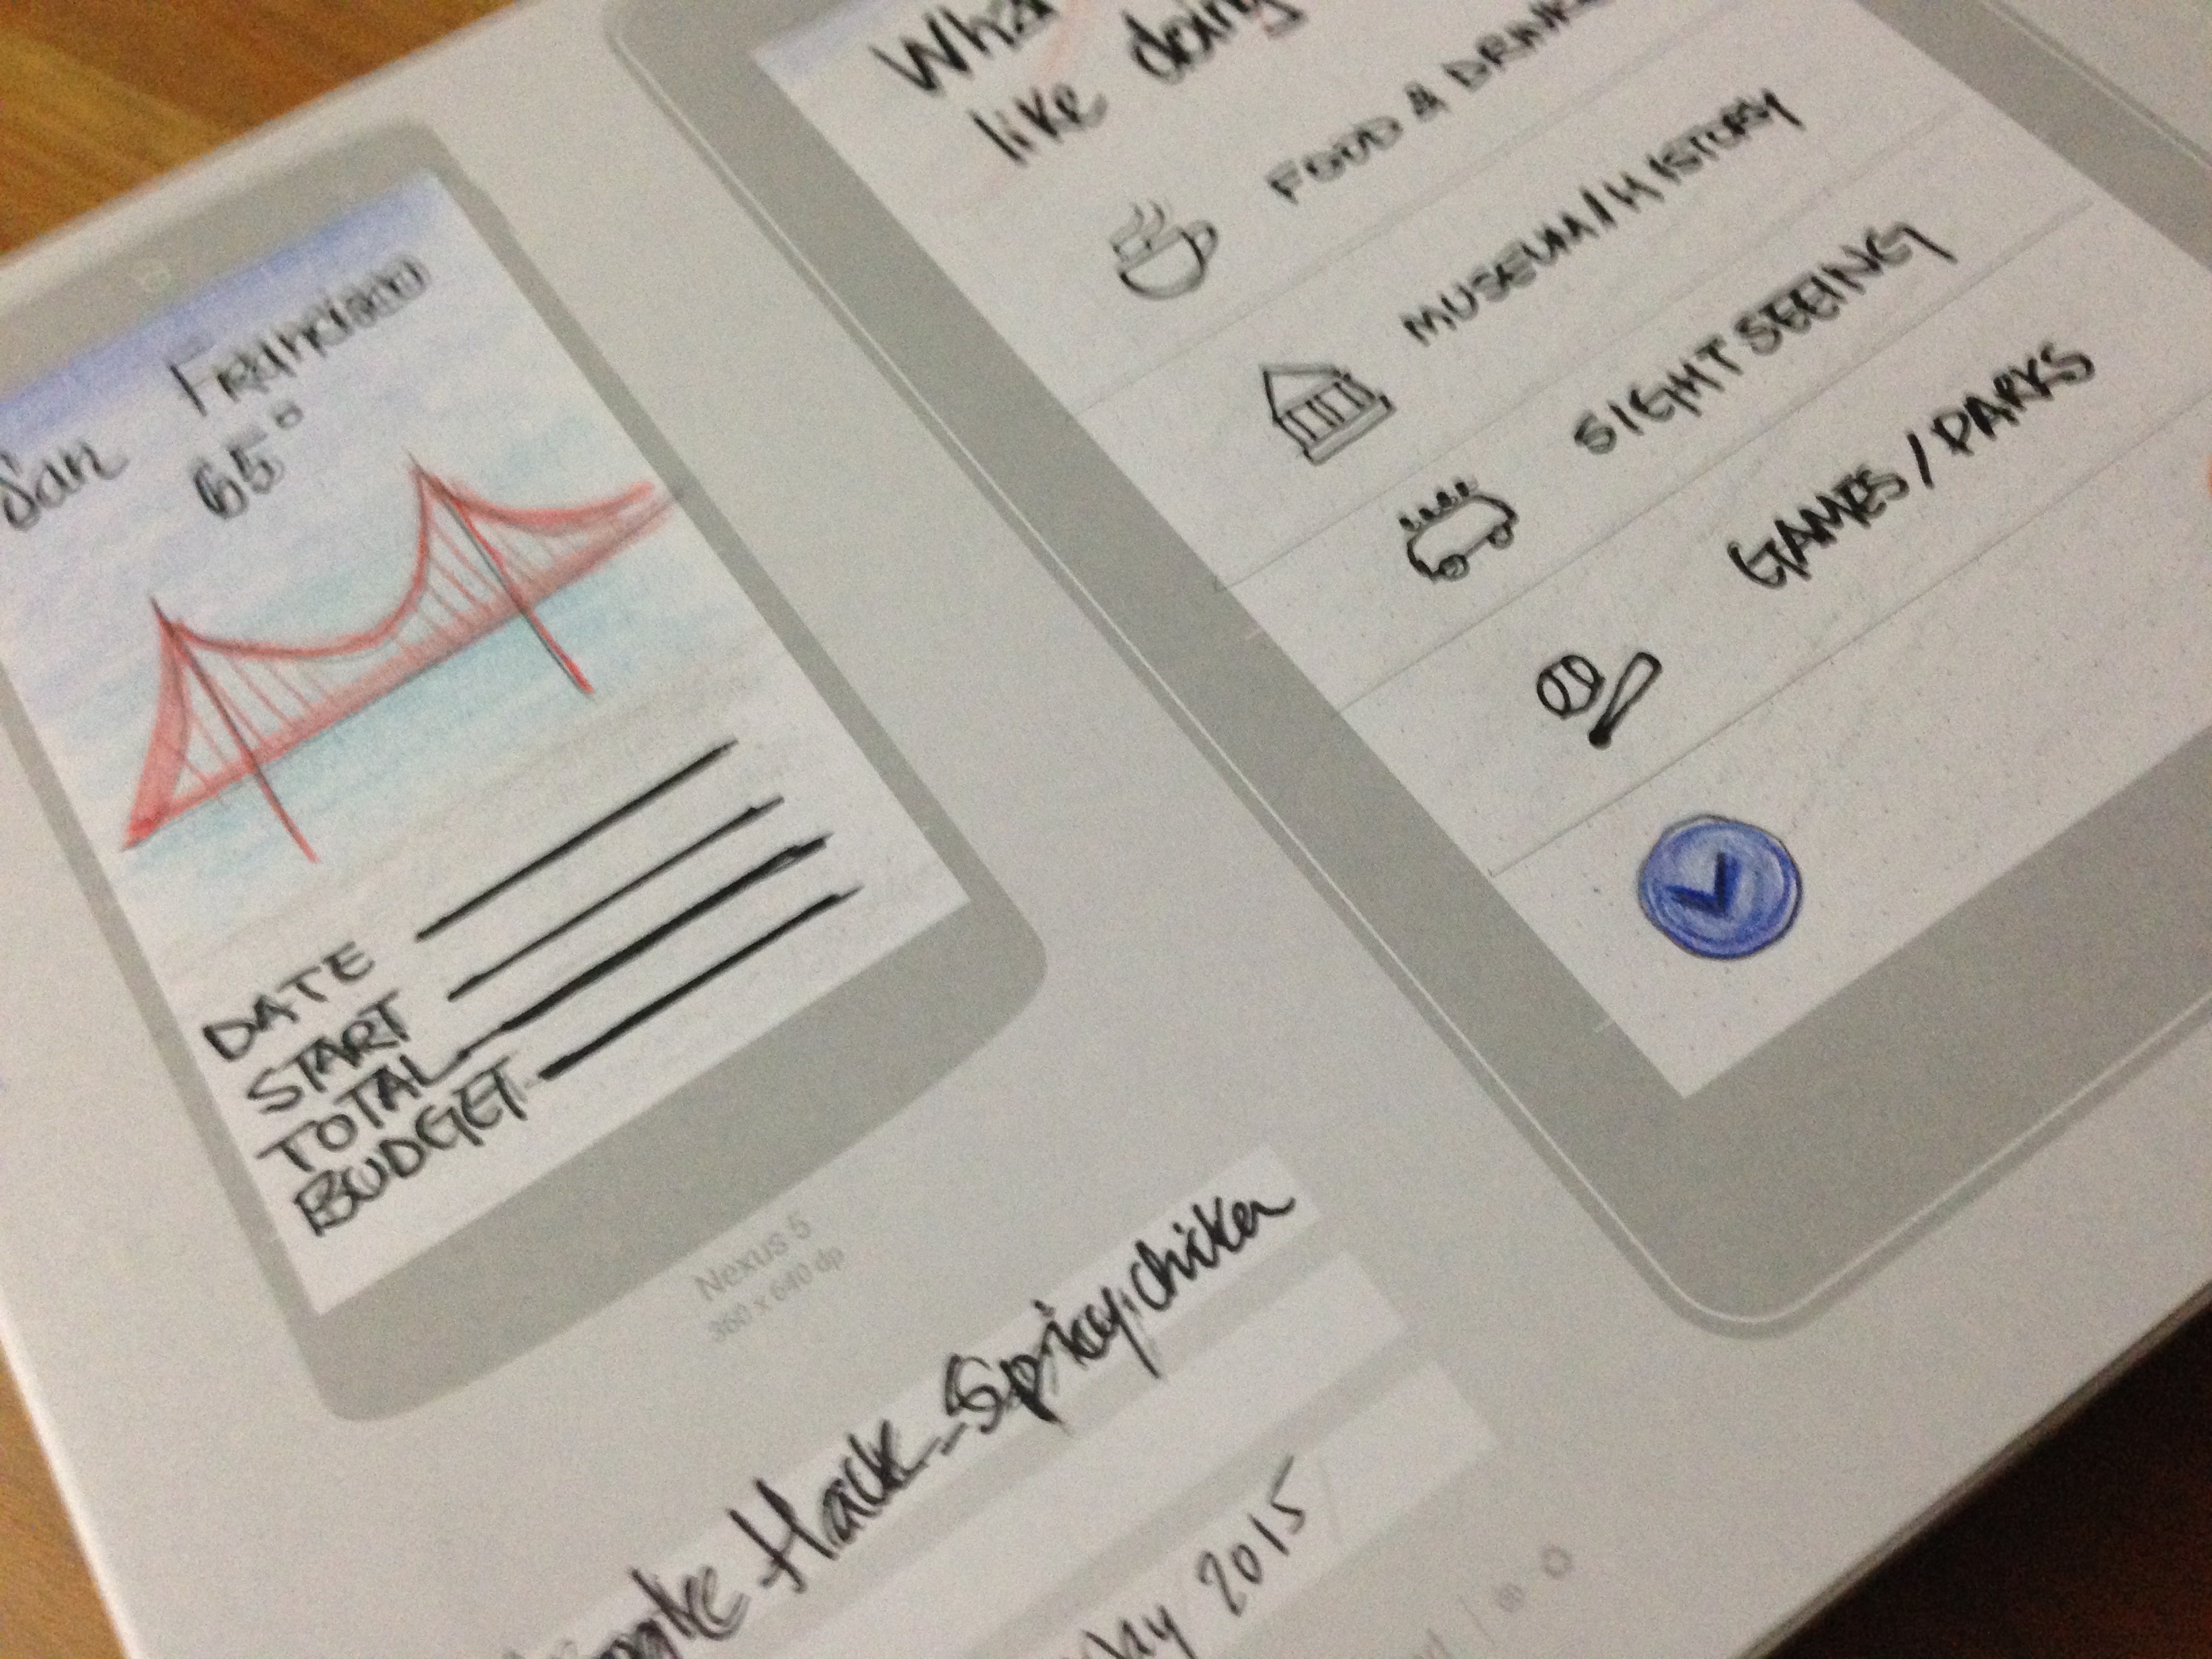 San Francisco
65°
DATE
START
TOTAL
BUDGET
Nexus 5
360 x 640 dp
like doing
FOOD & DRINKS
MUSEUM/HISTORY
SIGHT SEEING
GAMES/PARKS
Hack_Spicy.chicken
2015